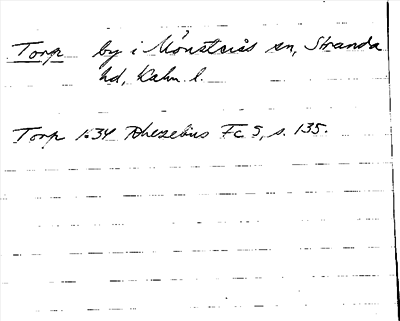 Torp by i Mönsterås sn, Stranda
hd, Kalm. l.
Torp 1:34 Rhezelius Fc 5, s. 135.